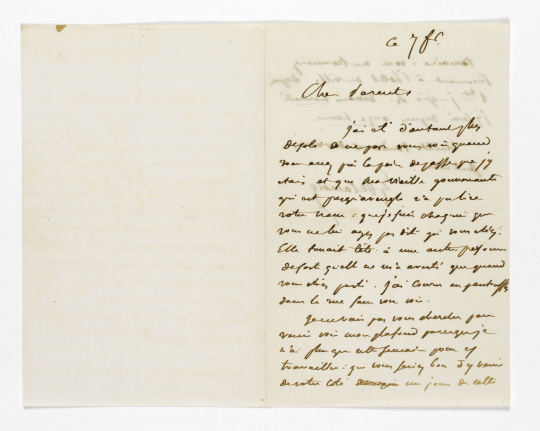 ce 7 fc.
Chers Parents
J'ai été d'autant plus
désolé de ne pas vous voir quand
vous avez pris la peine de passer que j'y
étais et que ma vieille gouvernante
qui est presqu'aveugle n'a pu lire
votre nom : que je suis chagrin que
vous ne lui ayez pas dit qui vous étiez.
Elle tenait tête à une autre personne
de sorte qu'elle ne m'a averti que quand
vous étiez parti. J'ai couru en pantoufles
dans la rue sans vous voir.
Je ne vais pas vous chercher pour
venir voir mon plafond parce que je
n'ai plus que cette semaine pour y
travailler : que vous seriez bon d'y venir
de votre côté un jour de cette